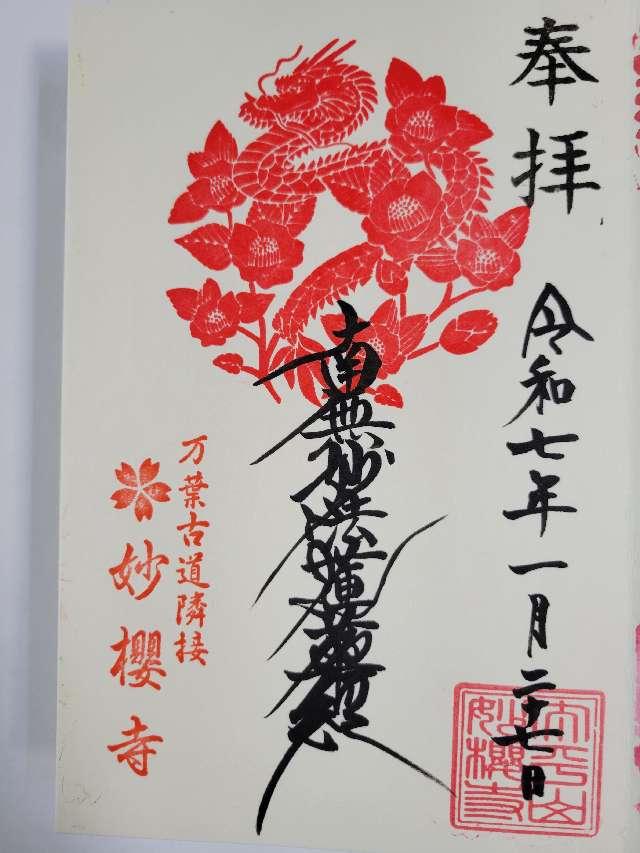 奉拝
令和七年一月二十七日
南無妙法蓮華経
万葉古道隣接
妙櫻寺
太平山
妙櫻寺